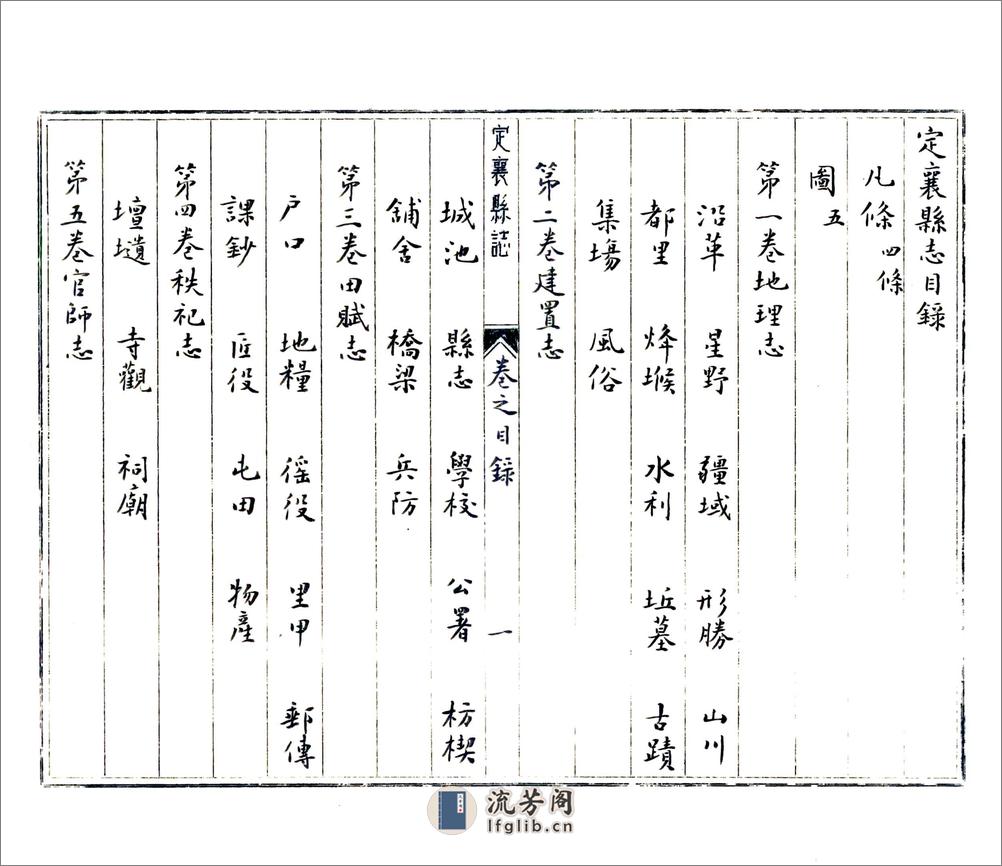 定襄縣志目錄
凡條 四條
圖 五
第一卷地理志
沿革 星野 疆域 形勝 山川
都里 烽堠 水利 坵墓 古蹟
集塲 風俗
第二卷建置志
定襄縣誌 卷之目錄 一
城池 縣志 學校 公署 枋楔
舖舍 橋梁 兵防
第三卷田賦志
户口 地糧 徭役 里甲 郵傳
課鈔 匠役 屯田 物產
第四卷秩祀志
壇壝 寺觀 祠廟
第五卷官師志
流芳阁
lfglib.cn